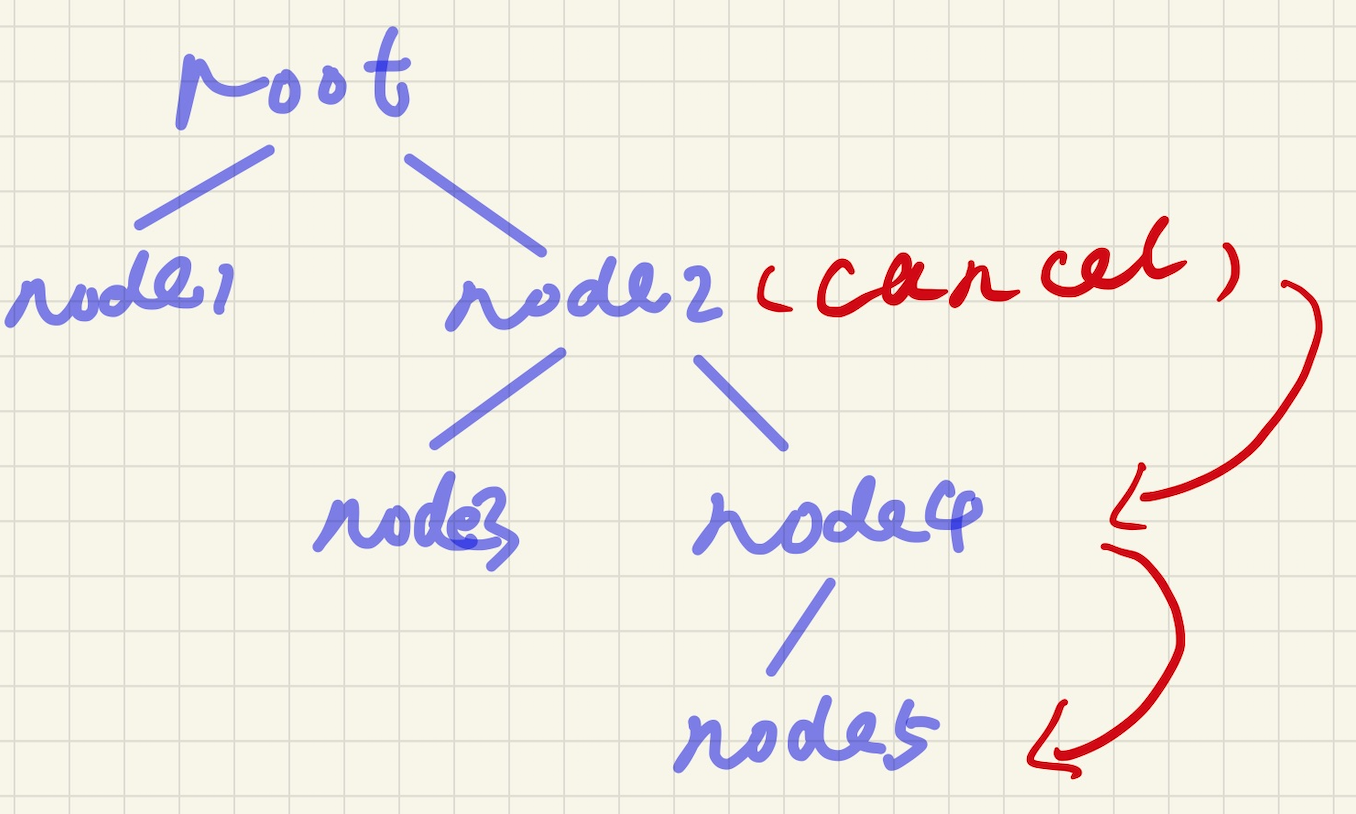 root
node1 node2 (cancel)
node3 node4
node5